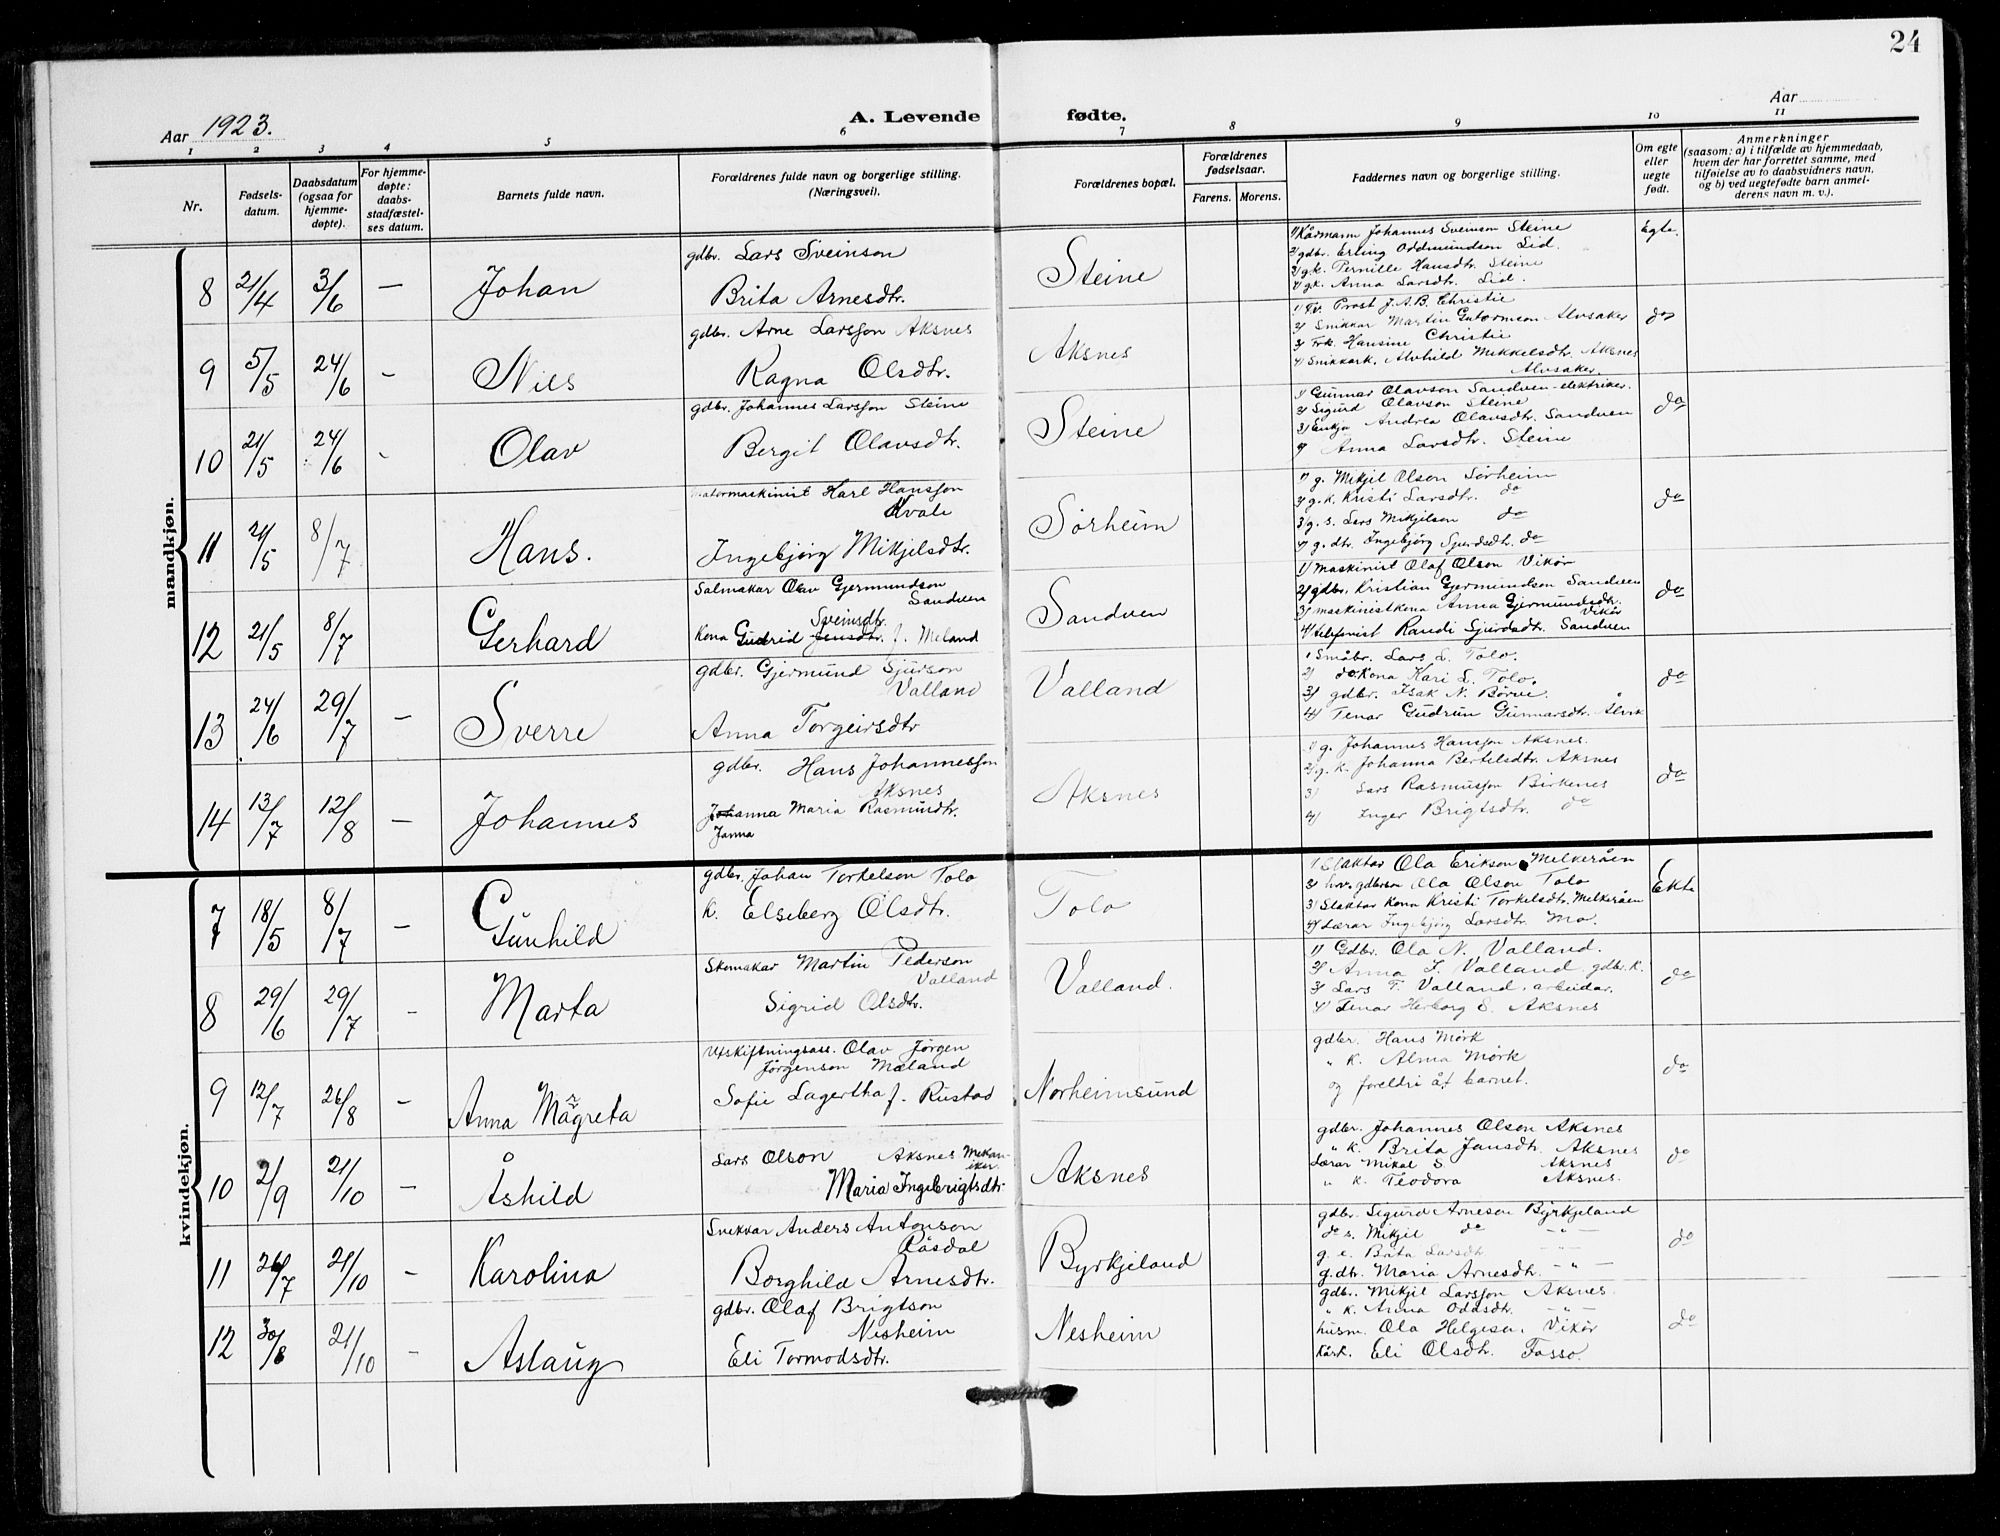 24
Aar 1923.
A. Levende fødte.
Aar
1 2 3 4 5 6 7 8 9 10 11
Nr.
Fødsels-
datum.
Daabsdatum
(ogsaa for
hjemme-
døpte).
For hjemme-
døpte:
daabs-
stadfæstel-
ses datum.
Barnets fulde navn.
Forældrenes fulde navn og borgerlige stilling.
(Næringsvei).
Forældrenes bopæl.
Forældrenes
fødselsaar.
Farens. Morens.
Faddernes navn og borgerlige stilling.
Om egte
eller
uegte
født.
Anmerkninger
(saasom: a) i tilfælde av hjemmedaab,
hvem der har forrettet samme, med
tilføielse av to daabsvidners navn,
og b) ved uegtefødte barn anmel-
derens navn m. v.).
mandkjøn.
8 21/4 3/6 — Johan
gdbr. Lars Sveinson
Brita Arnesdtr.
Steine
1/ Kårmann Johannes Sveinson Steine
2/ gdbr. Erling Oddmundson Lid
3/ g.k. Pernille Hansdtr. Steine
4/ g.k. Anna Larsdtr. Lid.
Egte.
9 5/5 24/6 – Nils
gdbr. Arne Larsson Aksnes
Ragna Olsdtr.
Aksnes
1/ Fv. Prost J.A.B. Christie
2/ Snikkar Martin Guttormson Alvsaker
3/ Frk. Hansine Christie
4/ Snikkark. Alvhild Mikkelsdtr. Aksnes
Alvsaker.
do
10 21/5 24/6 - Olav
gdbr. Johannes Larsson Steine
Bergit Olavsdtr.
Steine
1/ Gunnar Olavson Sandven - elektriker.
2/ Sigurd Olavson Steine
3/ Enkja Andrea Olavsdtr. Sandven
4/ Anna Larsdtr. Steine
do
11 21/5 8/7 Hans.
Motormaskinist Karl Hansson
Kvale
Ingebjørg Mikjelsdtr.
Sørheim
1/ g. Mikjel Olson Sørheim
2/ g.k. Kristi Larsdtr. do
3/ g.s. Lars Mikjelson do
4/ g.dtr. Ingebjørg Sjurdsdtr. do
do
12 21/5 8/7 Gerhard
Salmakar Olav Gjermundson
Sandven
Sveinsdtr.
Kona Gudrid Jensdtr. f. Meland
Sandven
1/ Maskinist Olaf Olson Vikør
2/ gdbr. Kristian Gjermundson Sandven
3/ maskinistkona Anna Gjermundsdtr.
Vikør
4/ telefonist Randi Sjurdsdtr. Sandven
do
13 24/6 29/7 – Sverre
gdbr. Gjermund Sjurson
Valland
Anna Torgeirsdtr
Valland
1 Småbr. Lars L. Tolo.
2) do kona Kari L. Tolo.
3) gdbr. Isak N. Børve.
4) Tenar Gudrun Gunnarsdtr. Ålvik
do
14 13/7 12/8 – Johannes
gdbr. Hans Johannesson
Aksnes
Johanna Maria Rasmundtr.
Janna
Aksnes
1/ g. Johannes Hansson Aksnes.
2/ g.k. Johanna Bertelsdtr. Aksnes
3) Lars Rasmusson Birkenes
4) Inger Brigtsdtr. do
do
kvindekjøn.
7 18/5 8/7 – Gunhild
gdbr. Johan Torkelson Tolo
k. Elseberg Olsdtr.
Tolo
1 Slaktar Ola Erikson Melkeråen
2/ gdbrson Ola Olson Tolo
3) Slaktar Kona Kristi Torkelsdtr. Melkeråen
4) Lærar Ingebjørg Larsdtr. Mo.
Ekte
8 29/6 29/7 - Marta
Skomakar Martin Pederson
Valland
Sigrid Olsdtr.
Valland.
1/ Gdbr. Ola N. Valland.
2/ Anna J. Valland. gdbr.k.
3/ Lars T. Valland. arbeidar.
4/ Tenar Herborg E. Aksnes
do
9 12/7 26/8 – Anna Magreta
Utskiftningsass. Olav Jørgen
Jørgenson Mæland
Sofie Lagertha f. Rustad
Norheimsund
gdbr. Hans Mørk
" k. Alma Mørk
og foreldri åt barnet.
do
10 2/9 21/10 – Åshild
Lars Olson Aksnes Mekan-
iker.
Maria Ingebrigtsdtr.
Aksnes
gdbr. Johannes Olson Aksnes
" k. Brita Jansdtr. Aksnes
Lærar Mikal S. Aksnes
" k. Teodora Aksnes.
do
11 26/7 21/10 – Karolina
Snekkar Anders Antonson
Råsdal
Borghild Arnesdtr.
Byrkjeland
gdbr. Sigurd Arneson Byrkjeland
do s. Mikjel do – " –
g.e. Brita Larsdtr. – " –
g.dtr. Maria Arnesdtr. – " –
do
12 30/8 21/10 – Aslaug
gdbr. Olaf Brigtson
Nesheim
Eli Tormodsdtr.
Nesheim
gdbr. Mikjel Larsson Aksnes.
" k. Anna Oddsdtr. – " –
husm. Ola Helgeson Vikør
kårk. Eli Olsdtr. Fosso.
do